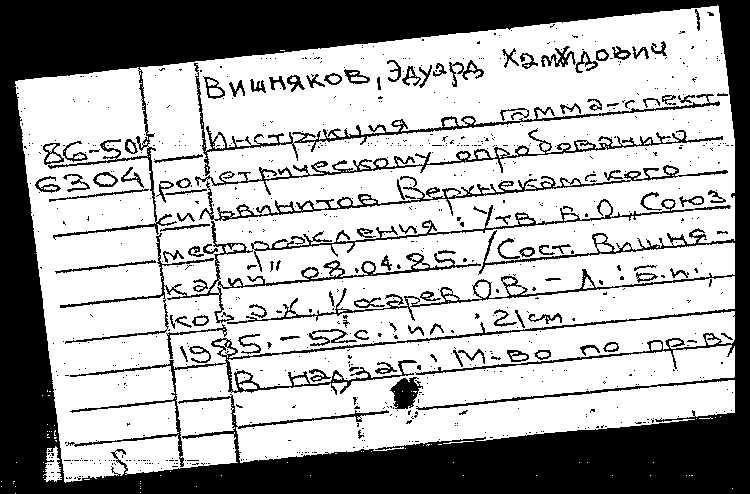 Вишняков, Эдуард Хамидович
86-50к
6304
Инструкция по гамма-спект-
рометрическому опробованию
сильвинитов Верхнекамского
месторождения : Утв. В.О. „Союз-
калий" 08.04.85. / Сост. Вишня-
ков Э.Х., Косарев О.В. - Л. : Б.и.,
1985. - 52с. : ил. ; 21см.
В надзаг. : М-во по пр-ву
8